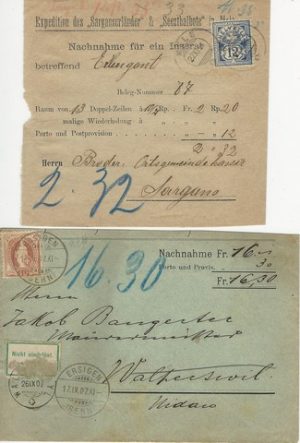 Expedition des "Sarganserländer" & "Seeztalbote" in Mels
Nachnahme für ein Inserat
betreffend
12
Beleg-Nummer 87
Raum von 13 Doppel-Zeilen à Fr. 2 Rp. 20
malige Wiederholung à " " "
Porto und Postprovision " — " 12
2 " 32
Herrn Broder, Ortsgemeindekassier
2.32
Sargans
Nachnahme Fr. 16.—
Porto und Provis. " 30
Fr. 16.30
16.30
Herrn
Jakob Bangerter
Walperswil
Nidau
Nicht eingelöst.
ERSIGEN
17.IX.07.XI
(BERN)
26.IX.07